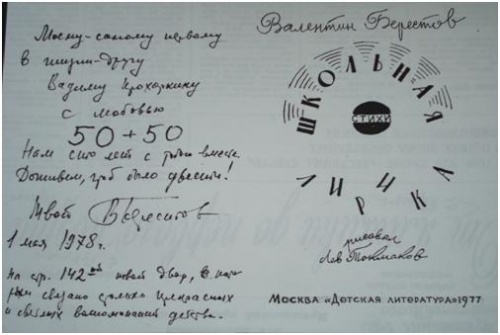 Моему-самому первому
в жизни-другу
Вадиму Прохоркину
с любовью
50 + 50
Нам сто лет с тобой вместе.
Доживем, чтоб было двести!
Твой В Берестов
1 мая 1978 г.
На стр. 142ой твой двор, с кото-
рым связано столько прекрасных
и светлых воспоминаний детства.
Валентин Берестов
ШКОЛЬНАЯ
СТИХИ
ЛИРИКА
рисовал
Лев Токмаков
МОСКВА «ДЕТСКАЯ ЛИТЕРАТУРА» 1977